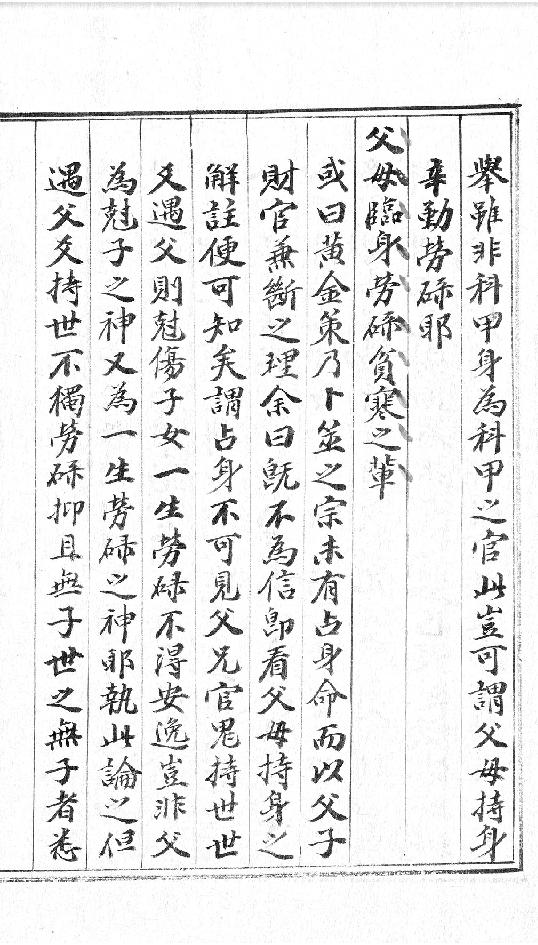 舉雖非科甲身為科甲之官此豈可謂父母持身
辛勤勞碌耶
父母臨身勞碌貧寒之輩
或曰黃金策乃卜筮之宗未有占身命而以父子
財官兼斷之理余曰既不為信即看父母持身之
解註便可知矣謂占身不可見父兄官鬼持世世
爻遇父則尅傷子女一生勞碌不得安逸豈非父
為尅子之神又為一生勞碌之神耶執此論之但
遇父爻持世不獨勞碌抑且無子世之無子者悉